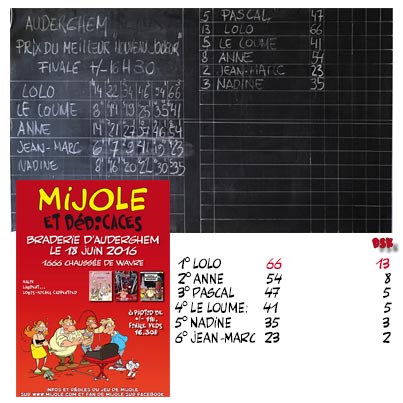 AUDERGHEM
"PRIX DU MEILLEUR "NOUVEAU JOUEUR"
FINALE +/- 16H30
LOLO 14 22 34 46 54 66
LE LOUME 8 19 25 35 41
ANNE 14 21 27 37 46 54
JEAN-MARC 6 7 9 15 23
NADINE 8 16 20 21 30 35
5 PASCAL 47
13 LOLO 66
5 LE LOUME 41
8 ANNE 54
2 JEAN-MARC 23
3 NADINE 35
MiJOLE
ET DÉDICACES
BRADERIE D'AUDERGHEM
LE 18 JUIN 2016
1666 CHAUSSÉE DE WAVRE
À PARTIR DE
+/- 11H.
FINALE VERS
16.30H
INFOS ET RÈGLES DU JEU DE MIJOLE
SUR WWW.MIJOLE.COM ET FAN DE MIJOLE SUR FACEBOOK
DSK
1° LOLO 66 13
2° ANNE 54 8
3° PASCAL 47 5
4° LE LOUME: 41 5
5° NADINE 35 3
6° JEAN-MARC 23 2